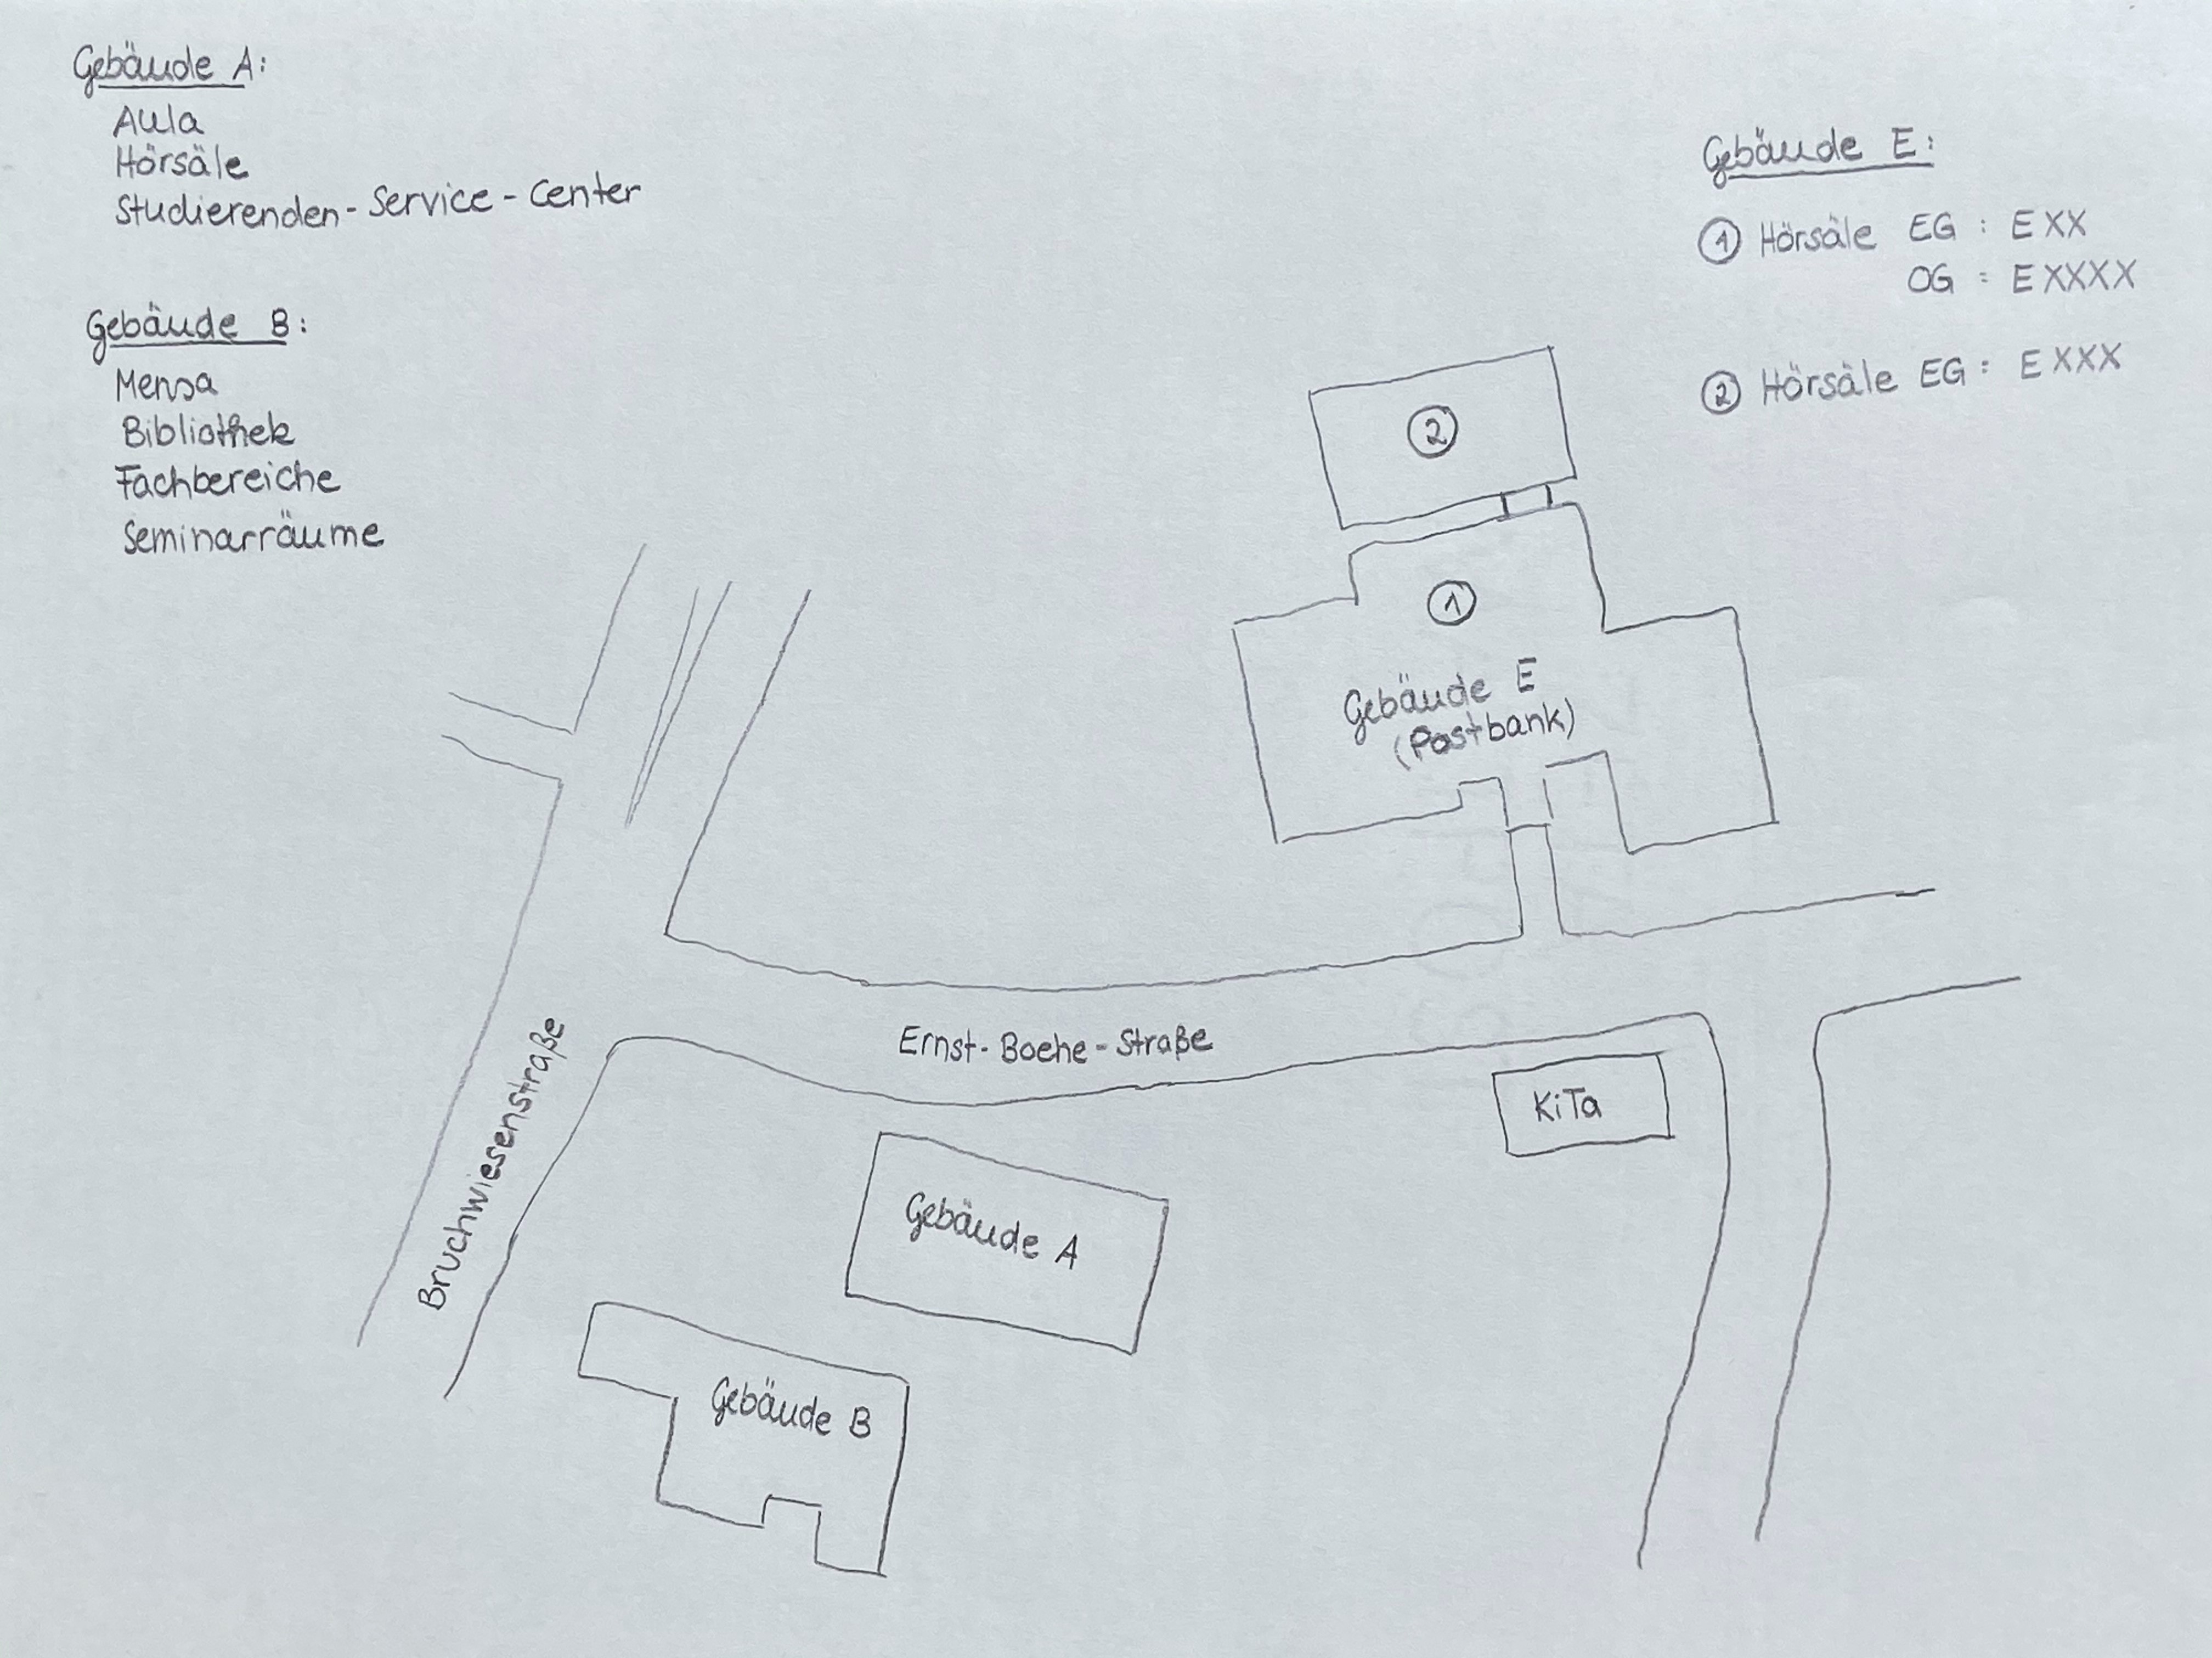 Gebäude A:
Aula
Hörsäle
Studierenden-Service-Center
Gebäude B:
Mensa
Bibliothek
Fachbereiche
Seminarräume
Gebäude E:
① Hörsäle EG: EXX
OG: EXXXX
② Hörsäle EG: EXXX
②
①
Gebäude E
(Postbank)
Ernst-Boehe-Straße
Bruchwiesenstraße
KiTa
Gebäude A
Gebäude B